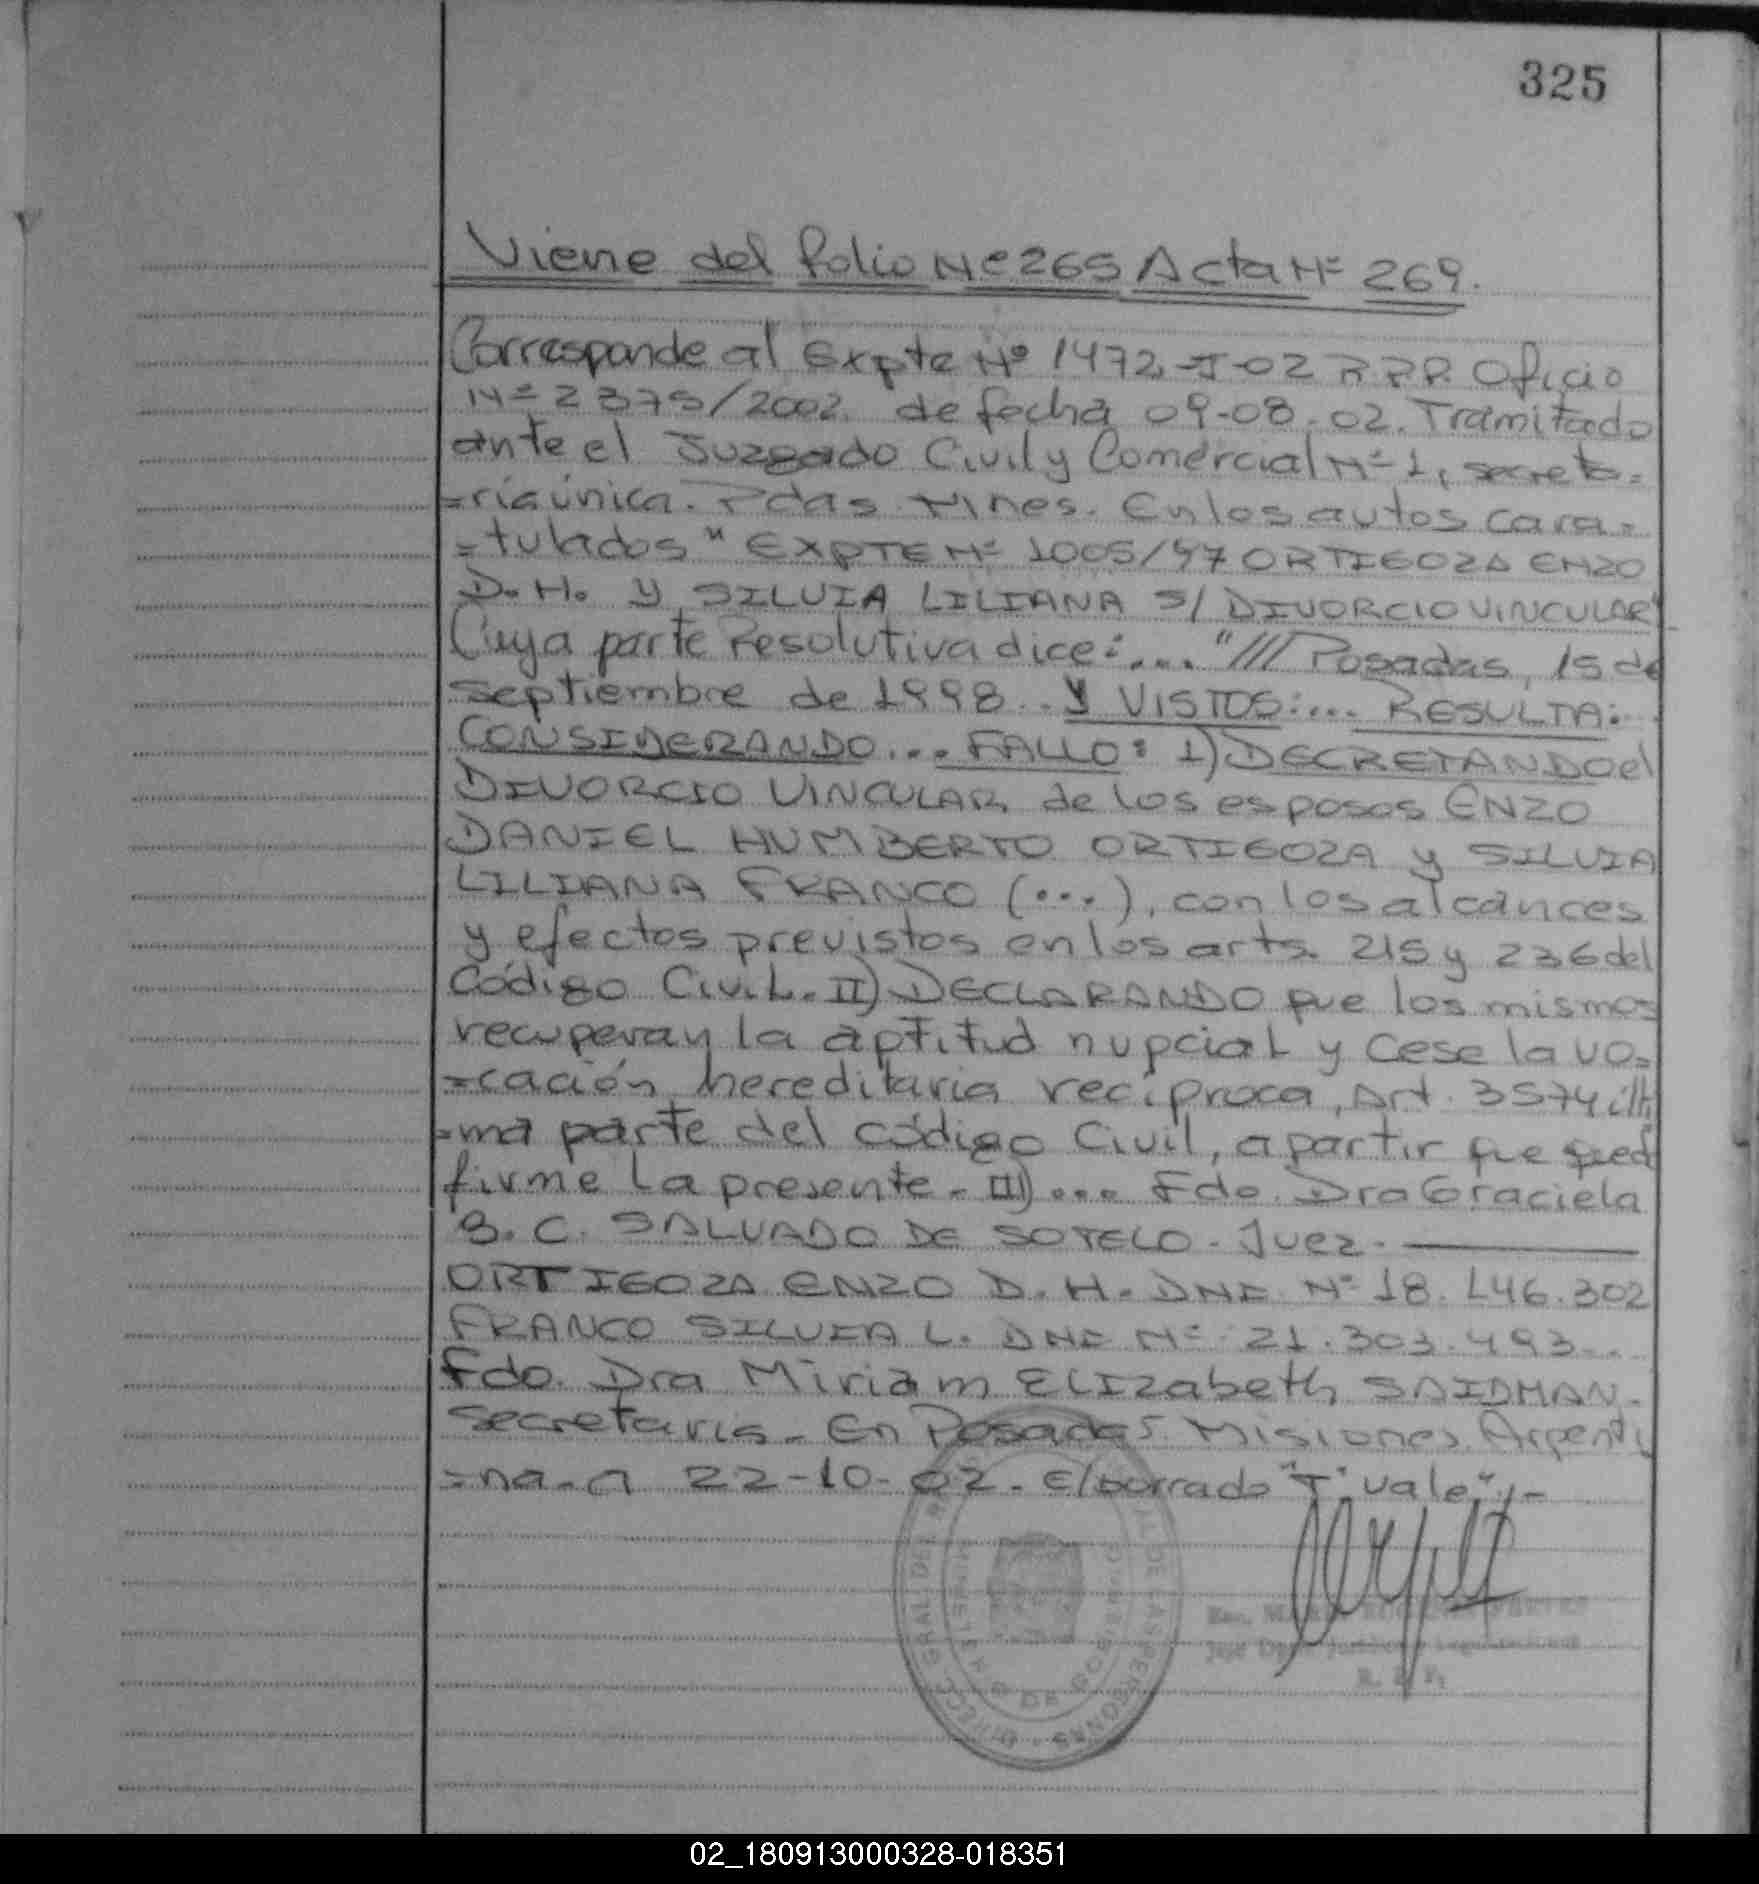 325
Viene del folio Nº 265 Acta Nº 269.
Corresponde al Expte Nº 1472-J-02 R.P.P. Oficio
Nº 2375/2002. de fecha 09-08-02. Tramitado
ante el Juzgado Civil y Comercial Nº 1, secreta=
=ría única. Pdas. Mnes. En los autos cara=
=tulados "EXPTE Nº 1005/97 ORTIGOZA ENZO
D. H. y SILVIA LILIANA S/ DIVORCIO VINCULAR"
Cuya parte Resolutiva dice:.... "/// Posadas, 15 de
septiembre de 1998.. Y VISTOS:... RESULTA:
CONSIDERANDO... FALLO: 1) DECRETANDO el
DIVORCIO VINCULAR de los esposos ENZO
DANIEL HUMBERTO ORTIGOZA y SILVIA
LILIANA FRANCO (...), con los alcances
y efectos previstos en los arts. 215 y 236 del
Código Civil. II) DECLARANDO que los mismos
recuperan la aptitud nupcial y cese la vo=
=cación hereditaria recíproca, Art. 3574 últi
=ma parte del código Civil, a partir que qued
firme la presente. III)... Fdo. Dra Graciela
B. C. SALVADO DE SOTELO. Juez.
ORTIGOZA ENZO D. H. DNI Nº 18.146.302
FRANCO SILVIA L. DNI Nº 21.303.493...
Fdo. Dra Miriam Elizabeth SAIDMAN.
Secretaria. En Posadas Misiones Argenti
=na. a 22-10-02. E/borrado "T" vale"/-
DE GOBIERNO
DE LAS PERSONAS
R. P. P.
02_180913000328-018351